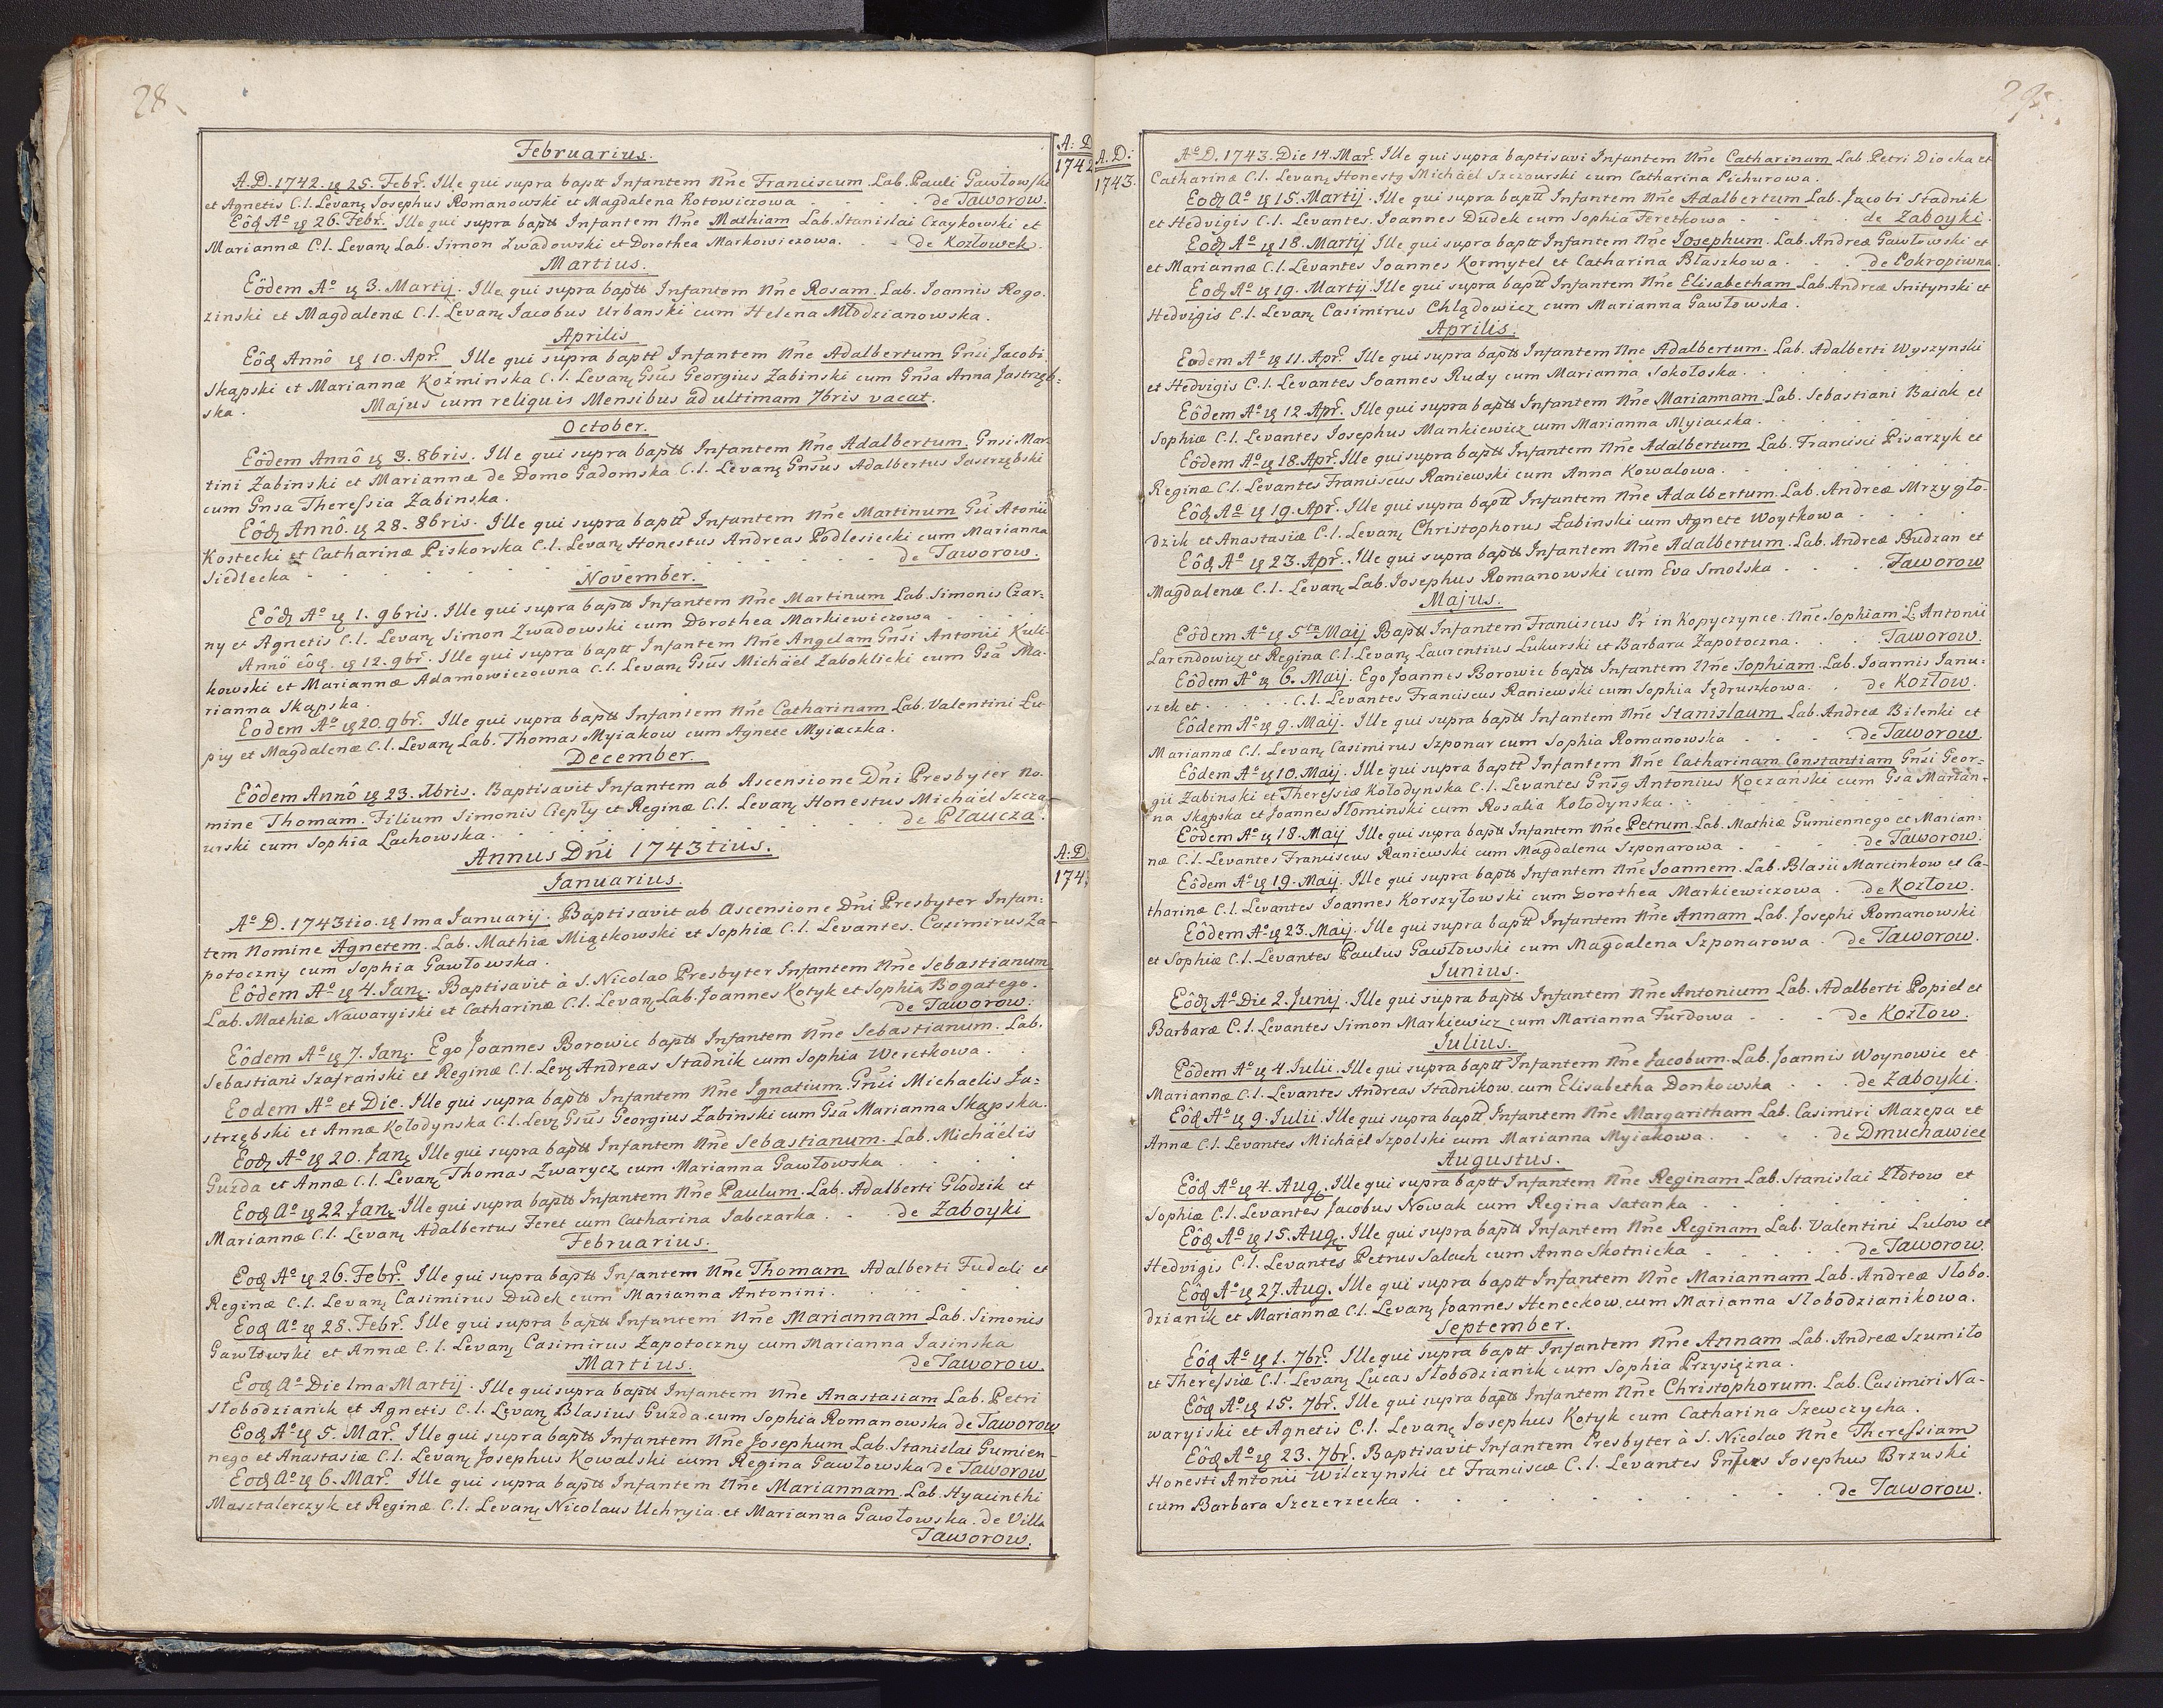 28
Februarius.
A.D. 1742. 25. Febr. Ille qui supra baptt Infantem Nne Franciscum Lab. Pauli Gawłowski
et Agnetis C.l. Levan Josephus Romanowski et Magdalena Kotowiczowa de Taworow.
Eôd Ao 26. Febr. Ille qui supra baptt Infantem Nne Mathiam Lab. Stanislai Czaykowski et
Mariannæ C.l. Levan Lab. Simon Zwadowski et Dorothea Markowiczowa. de Kozłowek.
Martius.
Eôdem Ao 3. Martij. Ille qui supra baptt Infantem Nne Rosam. Lab. Joannis Rogo.
zinski et Magdalenæ C.l. Levan Jacobus Urbanski cum Helena Młodzianowska.
Aprilis
Eôd Annô 10. Apr. Ille qui supra baptt Infantem Nne Adalbertum Gnsi Jacobi.
Skąpski et Mariannæ Koźminska C.l. Levan Gsus Georgius Zabinski cum Gnsa Anna Jastrzęb=
ska. Majus cum reliquis Mensibus ad ultimam 7bris vacat.
October.
Eôdem Annô 3. 8bris. Ille qui supra baptt Infantem Nne Adalbertum. Gnsi Mar=
tini Zabinski et Mariannæ de Domo Gadomska C.l. Levan Gnsus Adalbertus Jastrzębski
cum Gnsa Theressia Zabinska.
Eôd Annô. 28. 8bris. Ille qui supra baptt Infantem Nne Martinum Gsi Atonii
Kostecki et Catharinæ Piskorska C.l. Levan Honestus Andreas Podlesiecki cum Marianna
Siedlecka de Taworow.
November.
Eôd Ao 1. 9bris. Ille qui supra baptt Infantem Nne Martinum Lab. Simonis Czar=
ny et Agnetis C.l. Levan Simon Zwadowski cum Dorothea Markiewiczowa
Annô eôd. 12. 9br. Ille qui supra baptt Infantem Nne Angelam Gnsi Antonii Kuli-
kowski et Mariannæ Adamowiczowna C.l. Levan Gsus Michäel Zaboklicki cum Gsa Ma-
rianna Skąpska.
Eodem Ao 20. 9br. Ille qui supra baptt Infantem Nne Catharinam Lab. Valentini Lu-
piy et Magdalenæ C.l. Levan Lab. Thomas Myiakow cum Agnete Myiaczka.
December.
Eôdem Annô 23. Xbris. Baptisavit Infantem ab Ascensione Dni Presbyter No-
mine Thomam. Filium Simonis Ciepły et Reginæ C.l. Levan Honestus Michäel Szcza-
urski cum Sophia Lachowska. de Plaucza.
Annus Dni 1743tius.
Januarius.
Ao D. 1743tio. 1ma Januarij. Baptisavit ab Ascensione Dni Presbyter Infan=
tem Nomine Agnetem. Lab. Mathiæ Miątkowski et Sophiæ C.l. Levantes. Casimirus Za-
potoczny cum Sophia Gawłowska.
Eôdem Ao 4. Jan. Baptisavit à S. Nicolao Presbyter Infantem Nne Sebastianum
Lab. Mathiæ Nawaryiski et Catharinæ C.l. Levan Lab. Joannes Kotyk et Sophia Bogatego.
de Taworow.
Eôdem Ao 7. Jan. Ego Joannes Borowic baptt Infantem Nne Sebastianum. Lab.
Sebastiani Szafrański et Reginæ C.l. Lev Andreas Stadnik cum Sophia Weretkowa.
Eodem Ao et Die. Ille qui supra baptt Infantem Nne Ignatium. Gnsi Michaelis Ja=
strzębski et Annæ Kołodynska C.l. Lev Gsus Georgius Zabinski cum Gsa Marianna Skąpska.
Eod Ao 20. Jan Ille qui supra baptt Infantem Nne Sebastianum. Lab. Michäelis
Guzda et Annæ C.l. Levan Thomas Zwarycz cum Marianna Gawłowska
Eod Ao 22 Jan. Ille qui supra baptt Infantem Nne Paulum. Lab. Adalberti Głodzik et
Mariannæ C.l. Levan Adalbertus Feret cum Catharina Jabczarka. de Zaboyki
Februarius.
Eod Ao 26. Febr. Ille qui supra baptt Infantem Nne Thomam Adalberti Fudali et
Reginæ C.l. Levan Casimirus Dudek cum Marianna Antonini.
Eod Ao 28. Febr. Ille qui supra baptt Infantem Nne Mariannam Lab. Simonis
Gawłowski et Annæ C.l. Levan Casimirus Zapotoczny cum Marianna Jasinska
Martius. de Taworow.
Eod Ao Die 1ma Martij. Ille qui supra baptt Infantem Nne Anastasiam Lab. Petri
Słobodzianik et Agnetis C.l. Levan Blasius Guzda cum Sophia Romanowska de Taworow
Eod Ao 5. Mar. Ille qui supra baptt Infantem Nne Josephum Lab. Stanislai Gumien-
nego et Anastasiæ C.l. Levan Josephus Kowalski cum Regina Gawłowska de Taworow
Eod Ao 6. Mar. Ille qui supra baptt Infantem Nne Mariannam. Lab. Hyacinthi
Masztalerczyk et Reginæ C.l. Levan Nicolaus Uchryia et Marianna Gawłowska. de Villa
Taworow.
A: D
1742
A: D
174
29
A: D:
1743.
Ao D. 1743. Die 14. Mar. Ille qui supra baptisavi Infantem Nne Catharinam Lab Petri Diocka et
Catharinæ C.l. Levan Honesty Michäel Szczourski cum Catharina Pichurowa.
Eod Ao 15. Martij Ille qui supra baptt Infantem Nne Adalbertum Lab. Jacobi Stadnik
et Hedvigis C.l. Levantes. Joannes Dudek cum Sophia Feretkowa de Zaboyki.
Eod Ao 18. Martij Ille qui supra baptt Infantem Nne Josephum. Lab. Andreæ Gawłowski et
et Mariannæ C.l. Levantes Joannes Kormytel et Catharina Błaszkowa. de Pokropiwna.
Eod Ao 19. Martij Ille qui supra baptt Infantem Nne Elisabetham Lab. Andreæ Snitynski et
Hedvigis C.l. Levan Casimirus Chlądowicz cum Marianna Gawłowska.
Aprilis.
Eodem Ao 11. Apr. Ille qui supra baptt Infantem Nne Adalbertum. Lab. Adalberti Wyszynski
et Hedvigis C.l. Levantes Joannes Rudy cum Marianna Sokołoska.
Eôdem Ao 12. Apr. Ille qui supra baptt Infantem Nne Mariannam Lab. Sebastiani Baiak et
Sophiæ C.l. Levantes Josephus Mankiewicz cum Marianna Myiaczka.
Eôdem Ao 18. Apr. Ille qui supra baptt Infantem Nne Adalbertum Lab. Francisci Pisarzyk et
Reginæ C.l. Levantes Franciscus Raniewski cum Anna Kowalowa.
Eôd Ao 19. Apr. Ille qui supra baptt Infantem Nne Adalbertum. Lab. Andreæ Mrzygło-
dzik et Anastasiæ C.l. Levan Christophorus Zabinski cum Agnete Woytkowa
Eôd Ao 23. Apr. Ille qui supra baptt Infantem Nne Adalbertum. Lab. Andreæ Budzan et
Magdalenæ C.l. Levan Lab. Josephus Romanowski cum Eva Smolska Taworow
Majus.
Eôdem Ao 5ta Maij Baptt Infantem Franciscus Pr in Kopyczynce. Nne. Sophiam L. Antonii
Larendowicz et Regina C.l. Levan Laurentius Lukurski et Barbara Zapotoczna. Taworow.
Eôdem Ao 6. Maij. Ego Joannes Borowic baptt Infantem Nne Sophiam. Lab. Joannis Janu=
szek et C.l. Levantes Franciscus Raniewski cum Sophia Jędruszkowa. de Kozłow.
Eôdem Ao 9. Maij. Ille qui supra baptt Infantem Nne Stanislaum Lab. Andreæ Bilenki et
Mariannæ C.l. Levan Casimirus Szponar cum Sophia Romanowska de Taworow.
Eôdem Ao 10. Maij. Ille qui supra baptt Infantem Nne Catharinam Constantiam Gnsi Geor=
gii Zabinski et Theressiæ Kołodynska C.l. Levantes Gnsq Antonius Koczański cum Gsa Marian=
na Skąpska et Joannes Słominski cum Rosalia Kołodynska.
Eôdem Ao 18. Maij Ille qui supra baptt Infantem Nne Petrum. Lab. Mathiæ Gumiennego et Marian=
næ C.l. Levantes Franciscus Raniewski cum Magdalena Szponarowa de Taworow.
Eôdem Ao 19. Maij. Ille qui supra baptt Infantem Nne Joannem. Lab. Blasii Marcinkow et Ca-
tharinæ C.l. Levantes Joannes Korszyłowski cum Dorothea Markiewiczowa. de Kozłow.
Eôdem Ao 23. Maij. Ille qui supra baptt Infantem Nne Annam Lab. Josephi Romanowski
et Sophiæ C.l. Levantes Paulus Gawłowski cum Magdalena Szponarowa. de Taworow.
Junius.
Eôd Ao Die 2. Junij. Ille qui supra baptt Infantem Nne Antonium Lab. Adalberti Popiel et
Barbaræ C.l. Levantes Simon Markiewicz cum Marianna Furdowa de Kozłow.
Julius.
Eôdem Ao 4. Julii. Ille qui supra baptt Infantem Nne Jacobum. Lab. Joannis Woynowic et
Mariannæ C.l. Levantes Andreas Stadnikow cum Elisabetha Donkowska de Zaboyki.
Eôd Ao 9. Julii. Ille qui supra baptt Infantem Nne Margaritham Lab. Casimiri Mazepa et
Annæ C.l. Levantes Michäel Szpolski cum Marianna Myiakowa. de Dmuchawiec
Augustus.
Eôd Ao 4. Aug. Ille qui supra baptt Infantem Nne Reginam Lab. Stanislai Złotow et
Sophiæ C.l. Levantes Jacobus Nowak cum Regina Satanka
Eôd Ao 15. Aug. Ille qui supra baptt Infantem Nne Reginam Lab. Valentini Lulow et
Hedvigis C.l. Levantes Petrus Salach cum Anna Skotnicka de Taworow.
Eôd Ao 27. Aug. Ille qui supra baptt Infantem Nne Mariannam Lab. Andreæ Słobo.
dzianik et Mariannæ C.l. Levan Joannes Heneckow cum Marianna Słobodzianikowa.
September.
Eôd Ao 1. 7br. Ille qui supra baptt Infantem Nne Annam Lab. Andreæ Szumiło
et Theressiæ C.l. Levan Lucas Słobodzianik cum Sophia Przysiężna.
Eôd Ao 15. 7br. Ille qui supra baptt Infantem Nne Christophorum. Lab. Casimiri Na-
waryiski et Agnetis C.l. Levan Josephus Kotyk cum Catharina Szewczycha.
Eôd Ao 23. 7br. Baptisavit Infantem Presbyter à S. Nicolao Nne Theressiam
Honesti Antonii Wilczynski et Franciscæ C.l. Levantes Josephus Brzuski
cum Barbara Szczerzecka de Taworow.